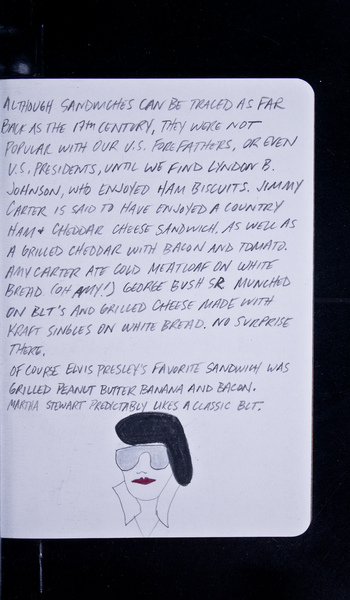 ALTHOUGH SANDWICHES CAN BE TRACED AS FAR
BACK AS THE 17TH CENTURY, THEY WERE NOT
POPULAR WITH OUR U.S. FOREFATHERS, OR EVEN
U.S. PRESIDENTS, UNTIL WE FIND LYNDON B.
JOHNSON, WHO ENJOYED HAM BISCUITS. JIMMY
CARTER IS SAID TO HAVE ENJOYED A COUNTRY
HAM & CHEDDAR CHEESE SANDWICH. AS WELL AS
A GRILLED CHEDDAR WITH BACON AND TOMATO.
AMY CARTER ATE COLD MEATLOAF ON WHITE
BREAD (OH AMY!) GEORGE BUSH SR. MUNCHED
ON BLT'S AND GRILLED CHEESE MADE WITH
KRAFT SINGLES ON WHITE BREAD. NO SURPRISE
THERE.
OF COURSE ELVIS PRESLEY'S FAVORITE SANDWICH WAS
GRILLED PEANUT BUTTER BANANA AND BACON.
MARTHA STEWART PREDICTABLY LIKES A CLASSIC BLT.